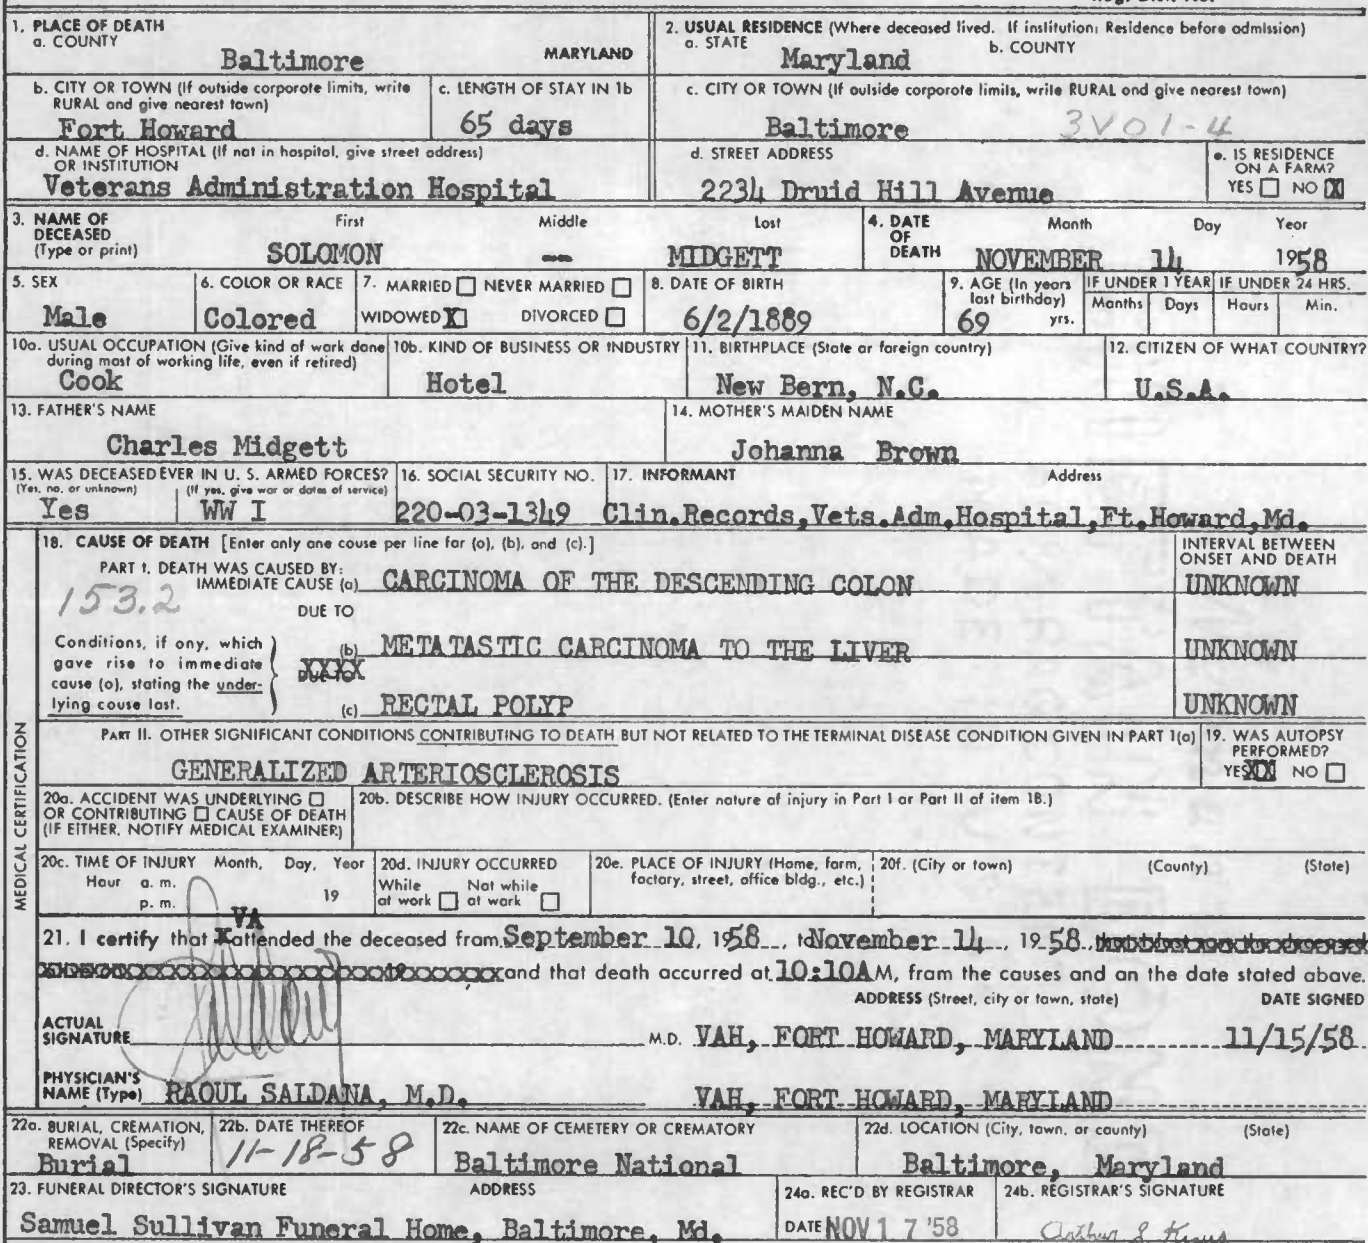 1. PLACE OF DEATH
a. COUNTY
Baltimore MARYLAND
2. USUAL RESIDENCE (Where deceased lived. If institution: Residence before admission)
a. STATE b. COUNTY
Maryland
b. CITY OR TOWN (If outside corporate limits, write RURAL and give nearest town)
Fort Howard
c. LENGTH OF STAY IN 1b
65 days
c. CITY OR TOWN (If outside corporate limits, write RURAL and give nearest town)
Baltimore 3V01-4
d. NAME OF HOSPITAL (If not in hospital, give street address)
OR INSTITUTION
Veterans Administration Hospital
d. STREET ADDRESS
2234 Druid Hill Avenue
e. IS RESIDENCE
ON A FARM?
YES NO X
3. NAME OF
DECEASED
(Type or print)
First Middle Last
SOLOMON — MIDGETT
4. DATE
OF
DEATH
Month Day Year
NOVEMBER 14 1958
5. SEX
Male
6. COLOR OR RACE
Colored
7. MARRIED NEVER MARRIED
WIDOWED X DIVORCED
8. DATE OF BIRTH
6/2/1889
9. AGE (In years
last birthday)
69 yrs.
IF UNDER 1 YEAR IF UNDER 24 HRS.
Months Days Hours Min.
10a. USUAL OCCUPATION (Give kind of work done
during most of working life, even if retired)
Cook
10b. KIND OF BUSINESS OR INDUSTRY
Hotel
11. BIRTHPLACE (State or foreign country)
New Bern, N.C.
12. CITIZEN OF WHAT COUNTRY?
U.S.A.
13. FATHER'S NAME
Charles Midgett
14. MOTHER'S MAIDEN NAME
Johanna Brown
15. WAS DECEASED EVER IN U. S. ARMED FORCES?
(Yes, no, or unknown) (If yes, give war or dates of service)
Yes WW I
16. SOCIAL SECURITY NO.
220-03-1349
17. INFORMANT Address
Clin.Records,Vets.Adm,Hospital,Ft.Howard,Md.
MEDICAL CERTIFICATION
18. CAUSE OF DEATH [Enter only one cause per line for (a), (b), and (c).]
INTERVAL BETWEEN
ONSET AND DEATH
PART I. DEATH WAS CAUSED BY:
IMMEDIATE CAUSE (a) CARCINOMA OF THE DESCENDING COLON UNKNOWN
153.2
DUE TO
Conditions, if any, which
gave rise to immediate
cause (a), stating the under-
lying cause last.
(b) METATASTIC CARCINOMA TO THE LIVER UNKNOWN
XXXX
DUE TO
(c) RECTAL POLYP UNKNOWN
PART II. OTHER SIGNIFICANT CONDITIONS CONTRIBUTING TO DEATH BUT NOT RELATED TO THE TERMINAL DISEASE CONDITION GIVEN IN PART I(a)
GENERALIZED ARTERIOSCLEROSIS
19. WAS AUTOPSY
PERFORMED?
YES XX NO
20a. ACCIDENT WAS UNDERLYING
OR CONTRIBUTING CAUSE OF DEATH
(IF EITHER, NOTIFY MEDICAL EXAMINER)
20b. DESCRIBE HOW INJURY OCCURRED. (Enter nature of injury in Part I or Part II of item 18.)
20c. TIME OF INJURY Month, Day, Year
Hour a. m.
p. m. 19
20d. INJURY OCCURRED
While Not while
at work at work
20e. PLACE OF INJURY (Home, farm,
factory, street, office bldg., etc.)
20f. (City or town) (County) (State)
VA
21. I certify that X attended the deceased from September 10, 1958, to November 14, 1958,
and that death occurred at 10:10AM, from the causes and on the date stated above.
ADDRESS (Street, city or town, state) DATE SIGNED
ACTUAL
SIGNATURE M.D. VAH, FORT HOWARD, MARYLAND 11/15/58
PHYSICIAN'S
NAME (Type) RAOUL SALDANA, M.D. VAH, FORT HOWARD, MARYLAND
22a. BURIAL, CREMATION,
REMOVAL (Specify)
Burial
22b. DATE THEREOF
11-18-58
22c. NAME OF CEMETERY OR CREMATORY
Baltimore National
22d. LOCATION (City, town, or county) (State)
Baltimore, Maryland
23. FUNERAL DIRECTOR'S SIGNATURE ADDRESS
Samuel Sullivan Funeral Home, Baltimore, Md.
24a. REC'D BY REGISTRAR
DATE NOV 17 '58
24b. REGISTRAR'S SIGNATURE
Arthur S Kraus